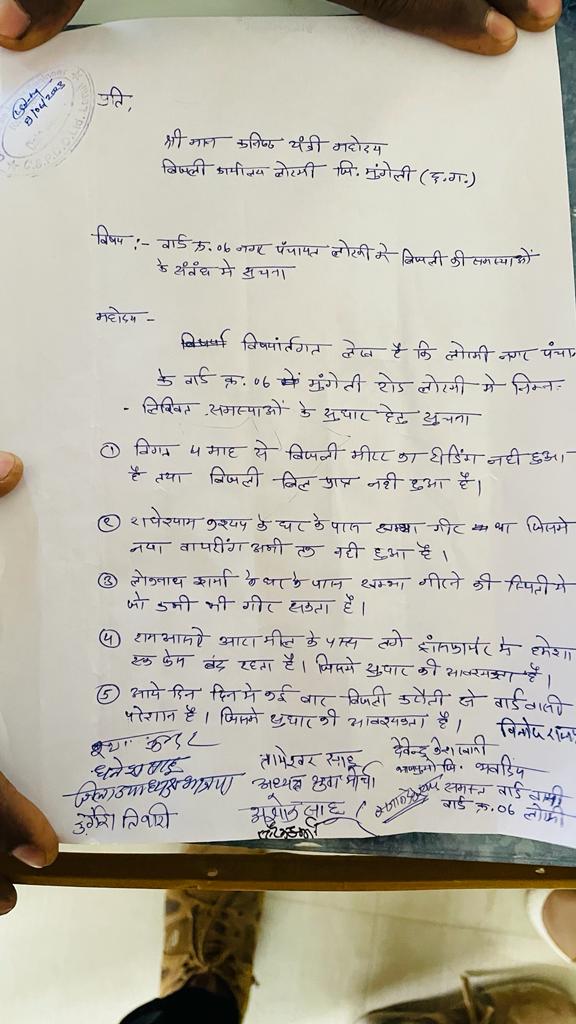 प्रति,
श्री मान कनिष्ठ यंत्री महोदय
बिजली कार्यालय लोरमी जि. मुंगेली (छ.ग.)
विषय :- वार्ड क्र. 06 नगर पंचायत लोरमी मे बिजली की समस्याओं
के संबंध मे सुचना
महोदय -
विषयांर्तगत लेख है कि लोरमी नगर पंचा
के वार्ड क्र. 06 मुंगेली रोड लोरमी मे निम्न-
- लिखित समस्याओं के सुधार हेतु सुचना
① विगत 4 माह से बिजली मीटर का रीडिंग नही हुआ
है तथा बिजली बिल प्राप्त नही हुआ है।
② राधेश्याम कश्यप के घर के पास खम्भा गीर था जिसमे
नया वायरींग अभी तक नही हुआ है।
③ लोकनाथ शर्मा के घर के पास खम्भा गीरने की स्थिती मे
जो कभी भी गीर सकता है।
④ रामआसरे आटा मील के पास लगे ट्रांसफार्मर मे हमेशा
एक फेस बंद रहता है। जिसमे सुधार की आवश्यकता है।
⑤ आये दिन दिन मे कई बार बिजली कटौती से वार्ड वासी
परेशान है। जिसमे सुधार की आवश्यकता है। विनोद
तामेश्वर साहू
देवेन्द्र
धनेश साहू
अध्यक्ष युवा मोर्चा
समस्त वार्ड वासी
वार्ड क्र. 06 लोरमी
दुर्गेश तिवारी
साहू